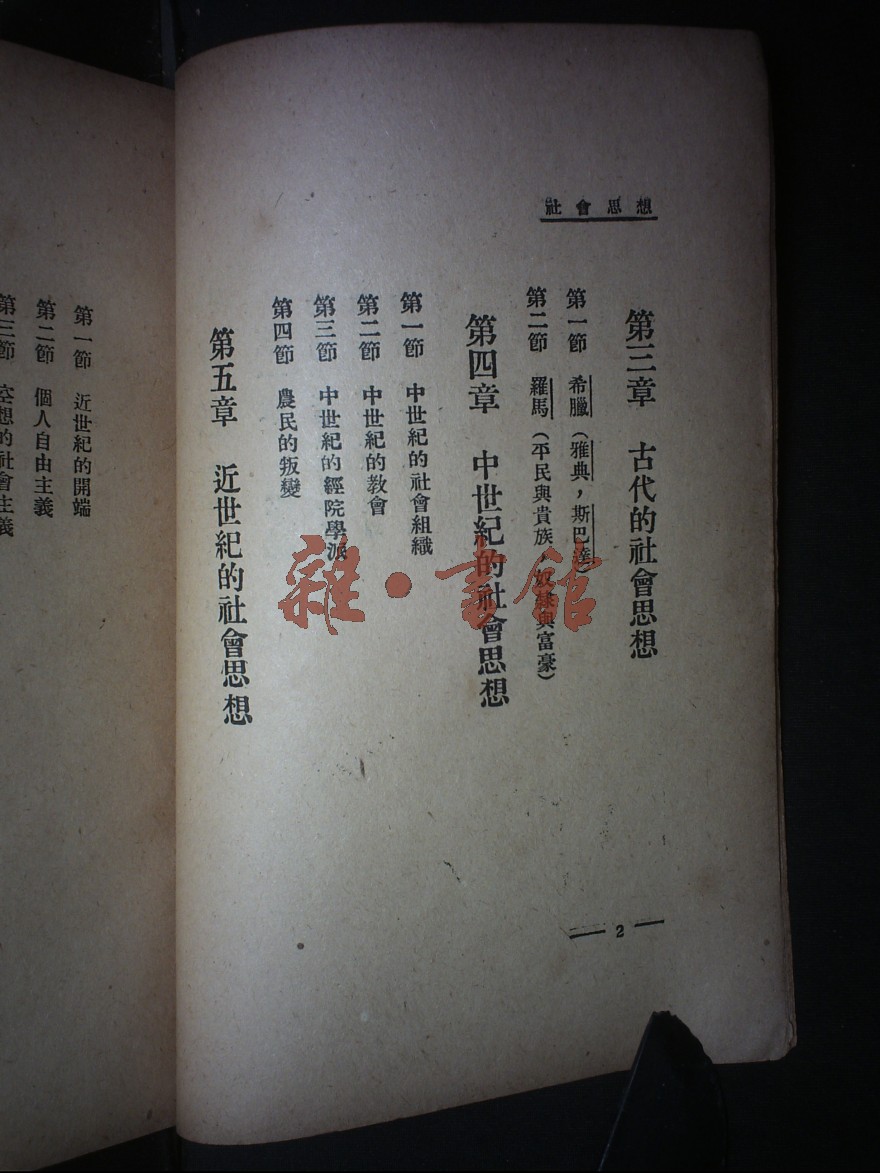 社會思想
第三章 古代的社會思想
第一節 希臘(雅典,斯巴達)
第二節 羅馬(平民與貴族,奴隸與富豪)
第四章 中世紀的社會思想
第一節 中世紀的社會組織
第二節 中世紀的教會
第三節 中世紀的經院學派
第四節 農民的叛變
第五章 近世紀的社會思想
2
第一節 近世紀的開端
第二節 個人自由主義
第三節 空想的社會主義
雜·書館